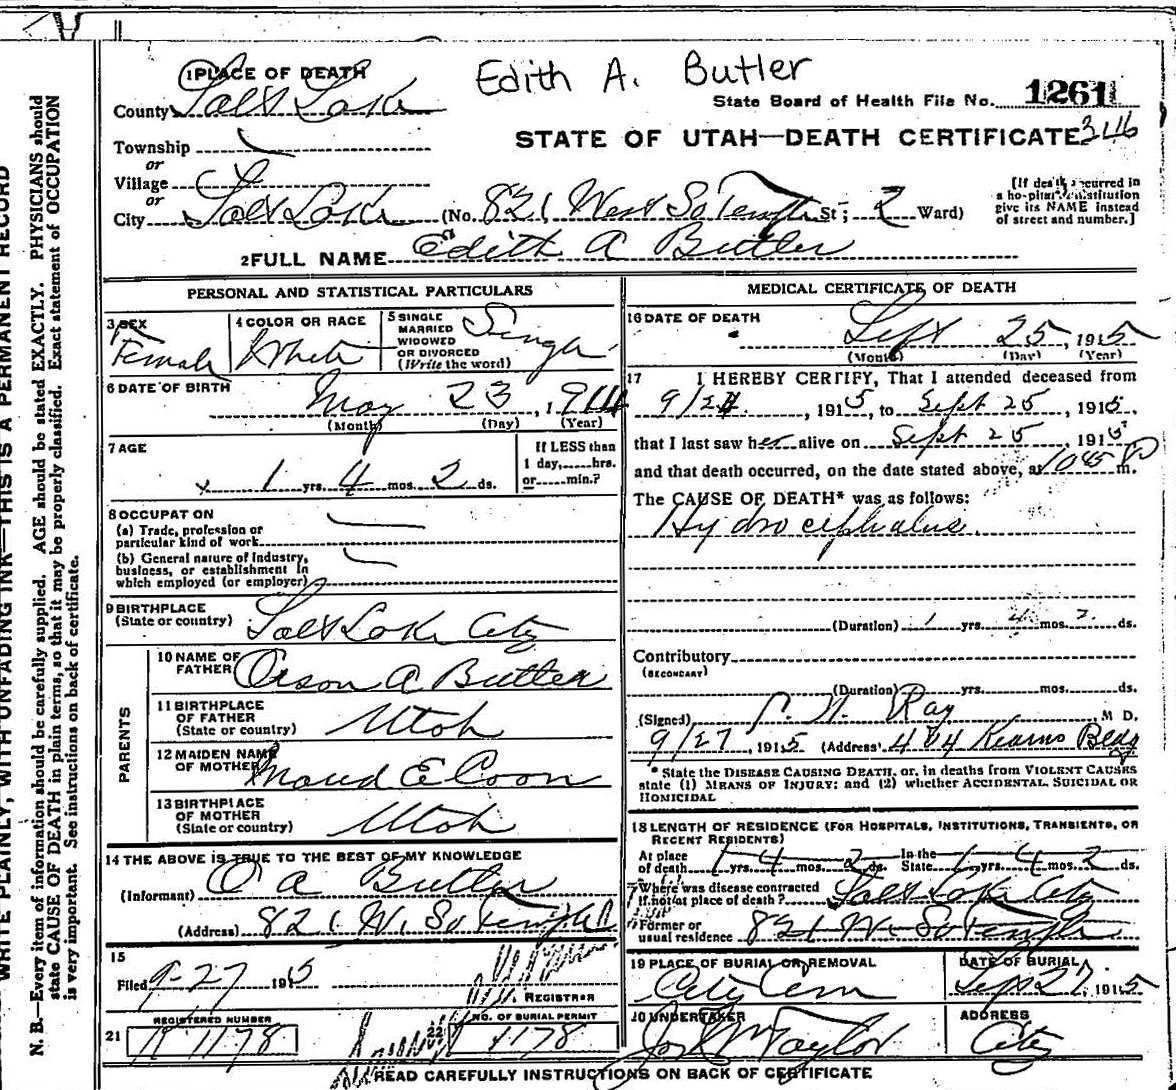 Edith A. Butler
1 PLACE OF DEATH
County Salt Lake
State Board of Health File No. 1261
STATE OF UTAH—DEATH CERTIFICATE
Township
or
Village
or
City Salt Lake (No. 821 West So Temple St; 2 Ward)
[If death occurred in
a hospital institution
give its NAME instead
of street and number.]
2 FULL NAME Edith A Butler
PERSONAL AND STATISTICAL PARTICULARS
3 SEX
Female
4 COLOR OR RACE
White
5 SINGLE
MARRIED
WIDOWED
OR DIVORCED
(Write the word)
Single
6 DATE OF BIRTH
May 23, 1914
(Month) (Day) (Year)
7 AGE
1 yrs. 4 mos. 2 ds.
If LESS than
1 day,.....hrs.
or.....min.?
8 OCCUPAT ON
(a) Trade, profession or
particular kind of work
(b) General nature of industry,
business, or establishment in
which employed (or employer)
9 BIRTHPLACE
(State or country) Salt Lake City
PARENTS
10 NAME OF
FATHER Orson A Butler
11 BIRTHPLACE
OF FATHER
(State or country) Utah
12 MAIDEN NAME
OF MOTHER Maud E Coon
13 BIRTHPLACE
OF MOTHER
(State or country) Utah
14 THE ABOVE IS TRUE TO THE BEST OF MY KNOWLEDGE
(Informant) O A Butler
(Address) 821 W. So Temple
15
Filed 9-27 1915
REGISTRAR
21 REGISTERED NUMBER
1178
22 NO. OF BURIAL PERMIT
1178
MEDICAL CERTIFICATE OF DEATH
16 DATE OF DEATH
Sept 25, 1915
(Month) (Day) (Year)
17 I HEREBY CERTIFY, That I attended deceased from
9/24, 1915, to Sept 25, 1915,
that I last saw her alive on Sept 25, 1915
and that death occurred, on the date stated above, at 1045 P m.
The CAUSE OF DEATH* was as follows:
Hydrocephalus.
(Duration) 1 yrs. 4 mos. 2 ds.
Contributory
(SECONDARY)
(Duration) yrs. mos. ds.
(Signed) Ray M D.
9/27, 1915 (Address) Kearns Bldg
* State the DISEASE CAUSING DEATH, or, in deaths from VIOLENT CAUSES
state (1) MEANS OF INJURY; and (2) whether ACCIDENTAL, SUICIDAL OR
HOMICIDAL
18 LENGTH OF RESIDENCE (FOR HOSPITALS, INSTITUTIONS, TRANSIENTS, OR
RECENT RESIDENTS)
At place
of death 1 yrs. 4 mos. 2 ds. In the
State 1 yrs. 4 mos. 2 ds.
Where was disease contracted
if not at place of death? Salt Lake City
Former or
usual residence 821 W. So Temple
19 PLACE OF BURIAL OR REMOVAL
City Cem
DATE OF BURIAL
Sept 27, 1915
20 UNDERTAKER
Taylor
ADDRESS
City
READ CAREFULLY INSTRUCTIONS ON BACK OF CERTIFICATE
WRITE PLAINLY, WITH UNFADING INK—THIS IS A PERMANENT RECORD
N. B.—Every item of information should be carefully supplied. AGE should be stated EXACTLY. PHYSICIANS should
state CAUSE OF DEATH in plain terms, so that it may be properly classified. Exact statement of OCCUPATION
is very important. See instructions on back of certificate.